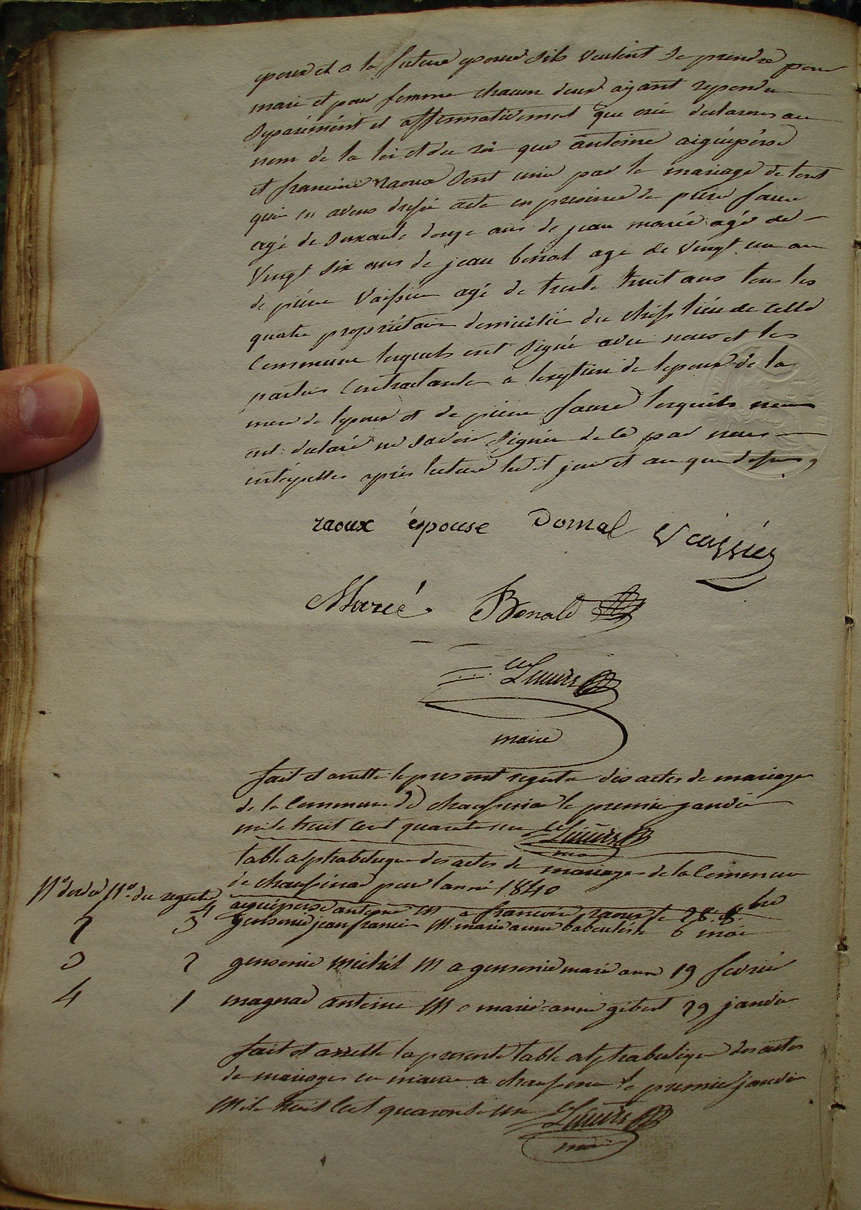 époux et a la future épouse sils veulent se prendre pour
mari et pour femme chacun deux ayant repondu
Separément et affirmativement que oui declarons au
nom de la loi et du roi que antoine aiguéperse
et francoise raoux Sont unie par le mariage de tout
quoi en avons dressé acte en presence de piérre faure
agé de Soixante douze ans de jean marié agé de
Vingt six ans de jean benal age de Vingt un an
de piérre Vaissier agé de trente huit ans tous les
quatre propriétaire domicilié du chef liéu de cette
Commune lesquels ont Signé avec nous et les
parties Contractante a lexeption de lepoux de la
mere de lepoux et de piérre faure lesquels nous
ont declaré ne Savoir Signée de ce par nous
intérpellés aprés lecture ledit jour et an que dessus
raoux épouse Domal Veissier
Marié Benald
maire
fait et arretté le present registre des actes de mariage
de la Commune de le premier janvier
mille huit Cent quarante un
table alphabetique des actes de mariage de la Commune
de pour l'année 1840
Nº dordre Nº du registre
4 aiguéperse antoine M a francoise raoux le 28 8bre
2 3 gensonie jean francois M marie anne 6 mai
3 2 gensonie michel M a gensonie marie anne 19 fevrié
4 1 magnad antoine M a marie anne gibert 29 janvier
fait et arretté la presente table alphabetique des actes
de mariages en mairie a le premier janvier
Mile huit Cent quarante un
maire